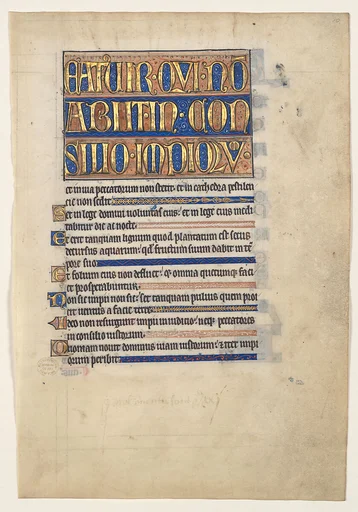 EATUIR·QUI·NO
ABIIT·IN·CON
SILIO·IMPIORUM·
et in uia peccatorum non stetit: et in cathedra pestilen
cie non sedit.
Set in lege domini uoluntas eius: et in lege eius medi
tabitur die ac nocte.
Et erit tanquam lignum quod plantatum est secus
decursus aquarum: quod fructum suum dabit in tem
pore suo.
Et folium eius non defluet: et omnia quecumque faci
et prosperabuntur.
Non sic impii non sic: set tanquam puluis quem proi
cit uentus a facie terre.
Ideo non resurgunt impii in iudicio: neque peccatores
in consilio iustorum.
Quoniam nouit dominus uiam iustorum: et iter impi
orum peribit.